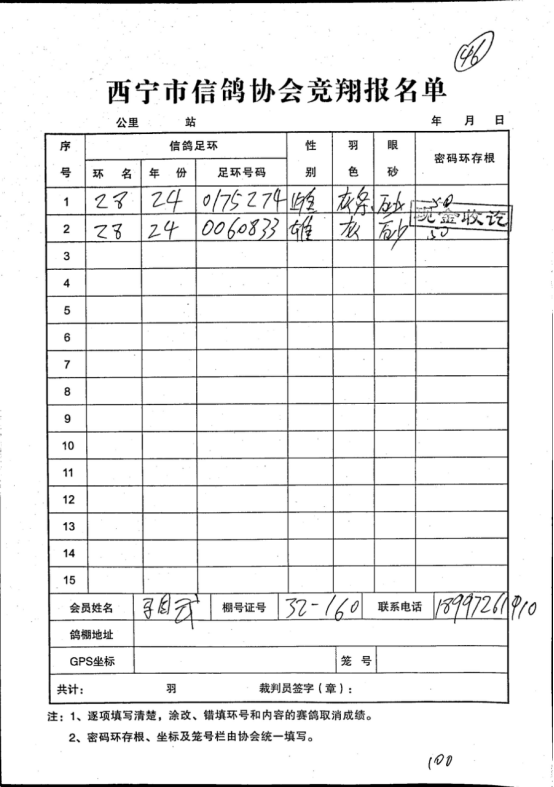 46
西宁市信鸽协会竞翔报名单
公里 站 年 月 日
序号 信鸽足环 性别 羽色 眼砂 密码环存根
环 名 年 份 足环号码
1 28 24 0175274 雄 灰条 砂 50
现金收讫
2 28 24 0060833 雄 灰 砂 50
3
4
5
6
7
8
9
10
11
12
13
14
15
会员姓名 棚号证号 32-160 联系电话 18997261910
鸽棚地址
GPS坐标 笼 号
共计: 羽 裁判员签字(章):
注:1、逐项填写清楚,涂改、错填环号和内容的赛鸽取消成绩。
2、密码环存根、坐标及笼号栏由协会统一填写。
100